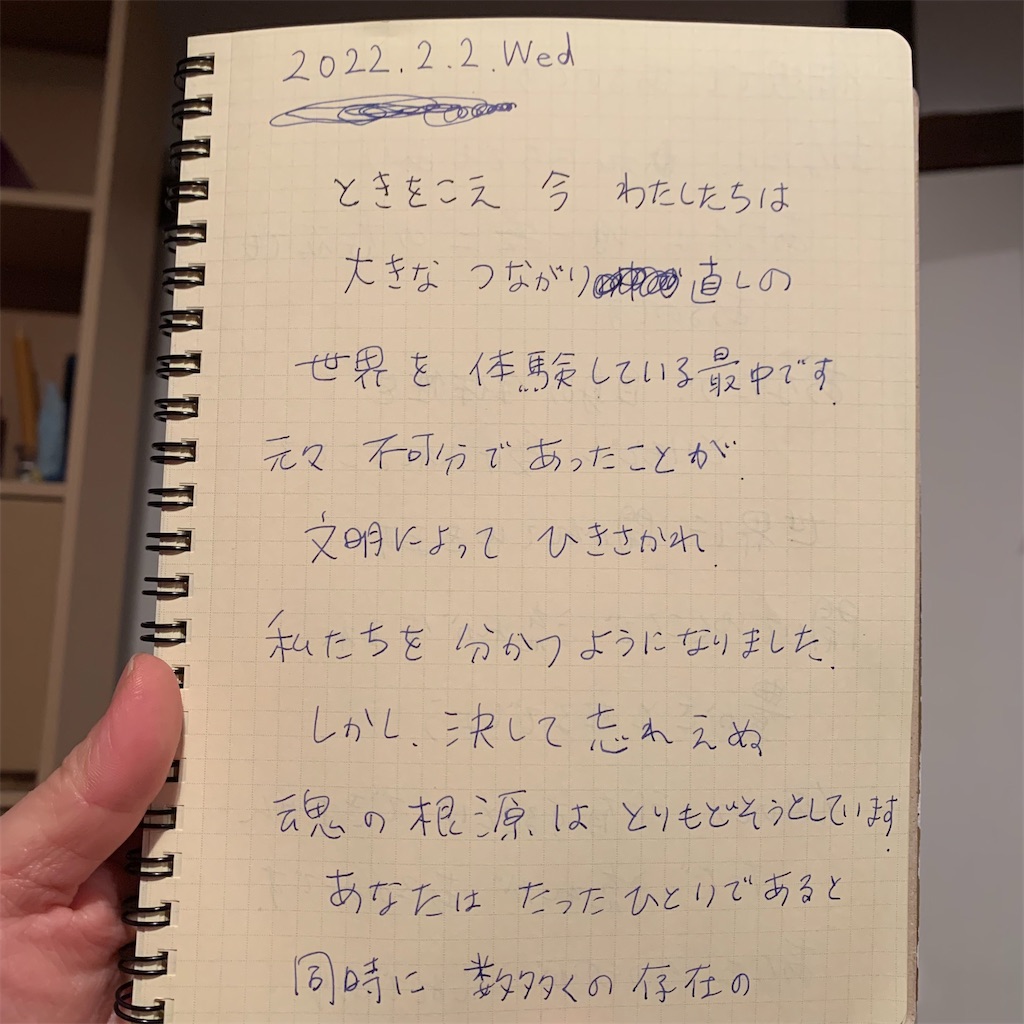 2022.2.2.Wed
ときをこえ 今 わたしたちは
大きな つながり直しの
世界を 体験している最中です.
元々 不可分であったことが.
文明によって ひきさかれ.
私たちを 分かつようになりました.
しかし. 決して忘れえぬ
魂の根源は とりもどそうとしています.
あなたは たったひとりであると
同時に 数多くの存在の